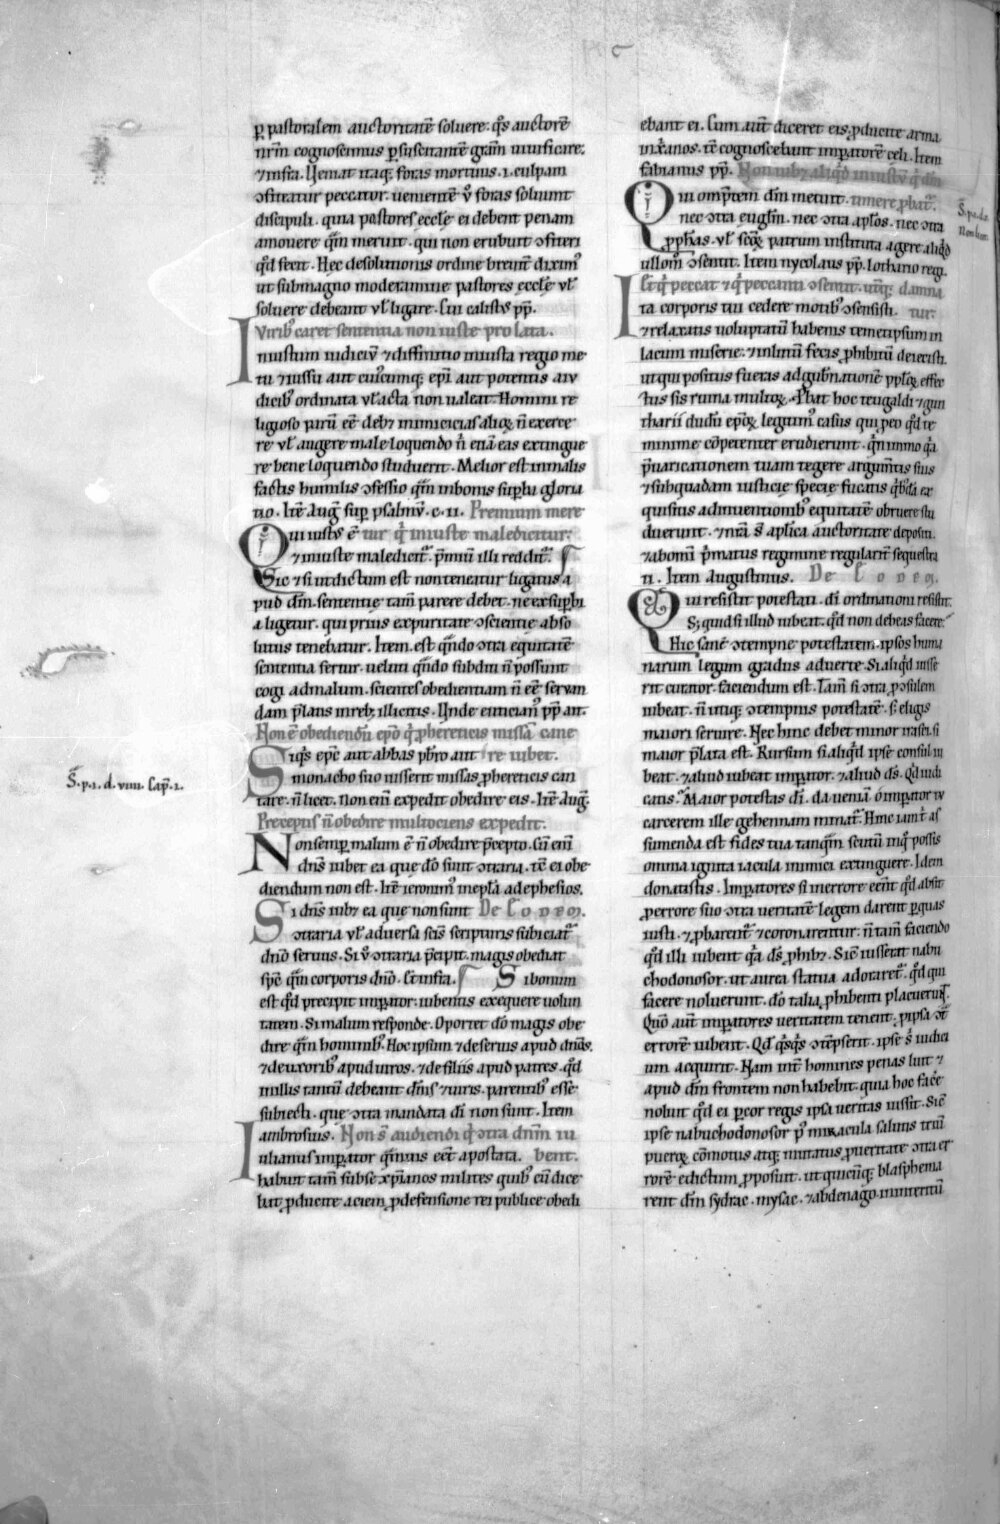 ꝑ pastoralem auctoritatē soluere. qͦs auctorē
nr̄m cognoscimus ꝑ suscitantē grām uiuificare.
⁊ infra. Ueniat itaq; foras mortuus .i. culpam
ꝯfiteatur peccator. uenientē ꝟ foras soluunt
discipuli. quia pastores eccl̄e ei debent penam
amouere quā meruit. qui non erubuit ꝯfiteri
qd̄ fecit. Hec de solutionis ordine breuit̄ diximꝰ
ut sub magno moderamine pastores eccl̄e ul̄
soluere debeant ul̄ ligare. Cui calistꝰ pp̄.
Viribꝰ caret sententia non iuste prolata.
Iniustum iudiciū ⁊ diffinitio iniusta regio me
tu ⁊ iussu aut cuiuscumq; ep̄i aut potentis a iu
dicibꝰ ordinata ul̄ acta non ualeat. Homini re
ligioso parū eē debꝫ inimicicias alioꝝ n̄ exerce
re ul̄ augere male loquendo n̄ etiā eas extingue
re bene loquendo studuerit. Melior est in malis
factis humilis ꝯfessio qͣm in bonis suꝑba gloria
tio. Itē Auḡ suꝑ psalmū .c. ii. Premium mere
Qui iustꝰ ē tur qͥ iniuste maledicitur.
⁊ iniuste maledicit̄. p̄miū illi reddit̄.
Sic ⁊ si iurdictum est non teneatur ligatus a
pud dm̄. sententie tam̄ parere debet. ne ex suꝑbia
a ligetur. qui prius ex puritate ꝯscientie abso
lutus tenebatur. Item. est qn̄do ꝯtra equitatē
sententia fertur. ueluti qn̄do subditi n̄ possunt
cogi ad malum. scientes obedientiam n̄ eē seruan
dam p̄latis in rebꝫ illicitis. Unde euticianꝰ pp̄ ait.
Non ē obediendū ep̄o qͥ ꝓ hereticis missā cane
Siqͥs ep̄c aut abbas pb̄ro aut re iubet.
monacho suo iusserit missas ꝓ hereticis can
tare. n̄ licet. non enī expedit obedire eis. Itē Auḡ.
Preceptis n̄ obedire multociens expedit.
Non semꝑ malum ē n̄ obedire p̄cepto. Cū enī
dn̄s iubet ea que dō sunt ꝯtraria. tē ei obe
diendum non est. Itē ieronimꝰ in epl̄a ad ephesios.
Si dn̄s iubꝫ ea que non sunt De eodem.
ꝯtraria ul̄ aduersa scīs scripturis subiciat̄
dn̄o seruus. Si ꝟ ꝯtraria p̄cipit. magis obediat
sp̄c qͣm corporis dn̄o. Et infra. Si bonum
est qd̄ precipit imꝑator. iubentis exequere uolun
tatem. Si malum responde. Oportet dō magis obe
dire qͣm hominibꝰ. Hoc ipsum ⁊ de seruis apud dn̄os.
⁊ de uxoribꝰ apud uiros. ⁊ de filiis apud patres. qd̄
in illis tantū debeant dn̄is ⁊ uiris. parentibꝰ esse
subiecti. que ꝯtra mandata dī non sunt. Item
ambrosius. Non s̄ audiendi qͥ ꝯtra dn̄m iu
Iulianus imꝑator qͣmuis eēt apostata. bent.
habuit tam̄ sub se xp̄ianos milites quibꝰ cū dice
bat ꝓducite aciem ꝓ defensione rei publice obedi
S̄. p. i. d. viiii. Cap̄. i.
ebant ei. Cum aut̄ diceret eis ꝓducite arma
in xp̄ianos. tē cognoscebant imꝑatorē celi. Item
fabianus pp̄. Non iubꝫ aliqͥd iniustū qͥ dm̄
Qui omp̄tem dm̄ metuit. timere ꝓbat̄.
nec ꝯtra euglm̄. nec ꝯtra apl̄os. nec ꝯtra
ꝓph̄as. ul̄ scōꝝ patrum instituta agere aliqͥd
ullom̄ ꝯsentit. Item nycolaus pp̄. lothario regi.
Et qͥ peccat ⁊ qͥ peccanti ꝯsentit. utq; damna
Ita corporis tui cedere motibꝰ ꝯsensisti. tur.
⁊ relaxatis uoluptatū habenis temetipsum in
lacum miserie. ⁊ in limū fecis ꝓhibitū deiecisti.
ut qui positus fueras ad gub̄nationē pploꝝ effec
tus sis ruina multoꝝ. Ꝓbat hoc teugaldi ⁊ gun
tharii dudū ep̄oꝝ legitimꝰ casus qui ꝓ eo qd̄ te
minime cōpetenter erudierunt. qn̄immo qͣ
p̄uaricationem tuam tegere argum̄tis suis
⁊ sub quadam iusticie specie fucatis qͥbꝰdā ex
quisitis adinuentionibꝰ equitatē obruere stu
duerunt. ⁊ nr̄a s̄ aplica auctoritate depositi.
⁊ ab omī p̄matus regimine regularit̄ sequestra
ti. Item Augustinus. De Eodem.
Qui resistit potestati. dī ordinationi resistit.
S; quid si illud iubeat. qd̄ non debeas facere.
Hic sanē ꝯtempne potestatem. ipsos huma
narum legum gradus aduerte. Si aliqͥd iusse
rit curator. faciendum est. Tam̄ si ꝯtra ꝓconsulem
iubeat. n̄ utiq; ꝯtempnis potestatē. s; eligis
maiori seruire. Nec hinc debet minor irasci. si
maior p̄lata est. Rursum si aliqͥd ipse consul iu
beat. ⁊ aliud iubeat imꝑator. ⁊ aliud ds̄. Qͥd iudi
catis. Maior potestas dī. da ueniā o imꝑator tu
carcerem ille gehennam minat̄. Hinc iam t̄ as
sumenda est fides tua tanqͣm scutū in qͦ possis
omnia ignita iacula inimici extinguere. Idem
donatistis. Imꝑatores si in errore eēnt qd̄ absit
ꝓ errore suo ꝯtra ueritatē legem darent ꝑ quas
iusti. ⁊ ꝓbarent̄ ⁊ coronarentur. n̄ tam̄ faciendo
qd̄ illi iubent qͣ ds̄ ꝓhibꝫ. Sic̄ iusserat nabu
chodonosor. ut aurea statua adoraret̄. qd̄ qui
facere noluerunt. dō talia ꝓhibenti placuerūt.
Qn̄ aut̄ imꝑatores ueritatem tenent. ꝓ ipsa ꝯt̄
errorē iubent. Qd̄ qͥsqͥs ꝯtēpserit. ipse s̄ iudici
um acquirit. Nam int̄ homines penas luit ⁊
apud dm̄ frontem non habebit. quia hoc facē
noluit qd̄ ei ꝑ cor regis ipsa ueritas iussit. Sic̄
ipse nabuchodonosor pꝰ miracula salutis triū
pueroꝝ cōmotus atq; mutatus ꝓ ueritate ꝯtra er
rorē edictum ꝓposuit. ut quicūq; blasphema
rent dm̄ sydrac. mysac. ⁊ abdenago. in interitū